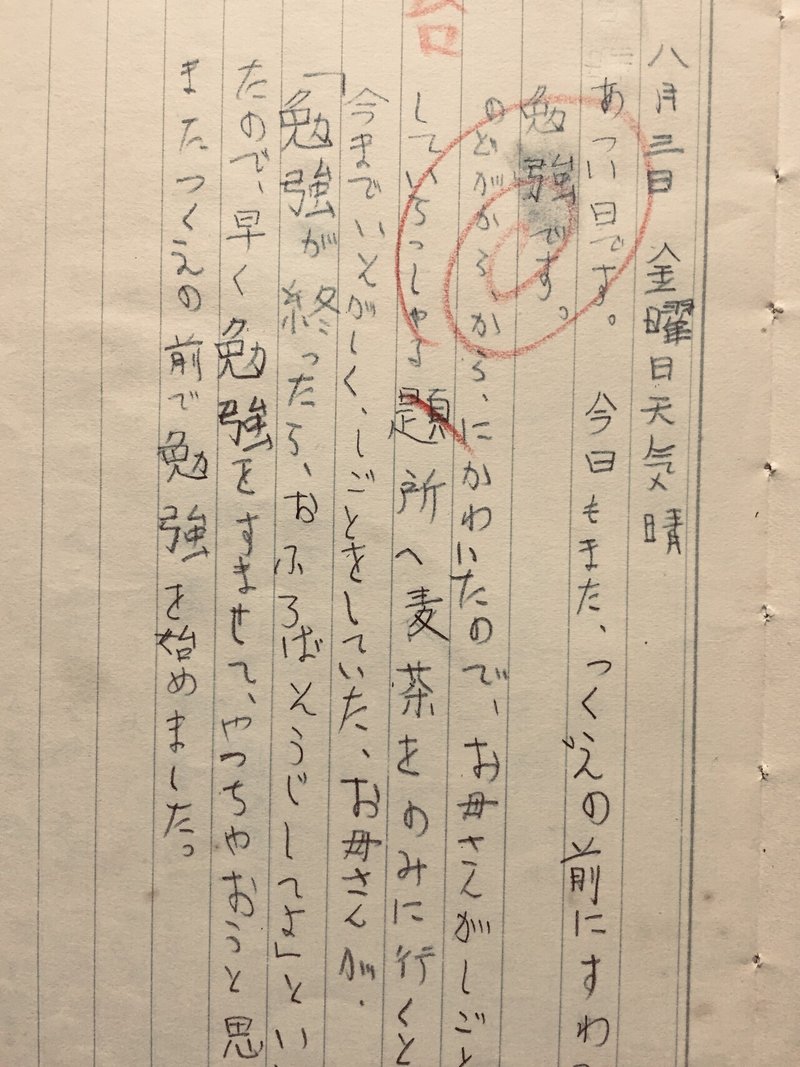 八月三日 金曜日天気晴
あつい日です。 今日もまた、つくえの前にすわ
勉強です。
のどがから、から、にかわいたので、お母さんがしごと
台
していらっしゃる題所へ麦茶をのみに行くと
今までいそがしく、しごとをしていた、お母さんが、
「勉強が終ったら、おふろばそうじしてよ」とい
たので、早く勉強をすませて、やっちゃおうと思
またつくえの前で勉強を始めました。